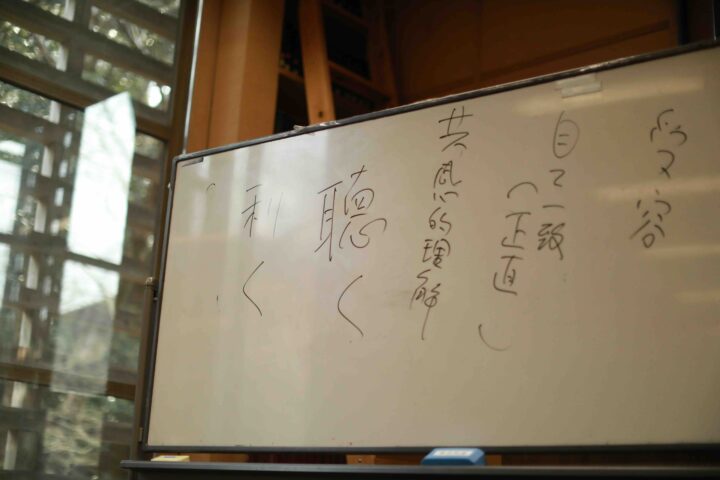 受容
自己一致
(正直)
共感的理解
聴く
利く